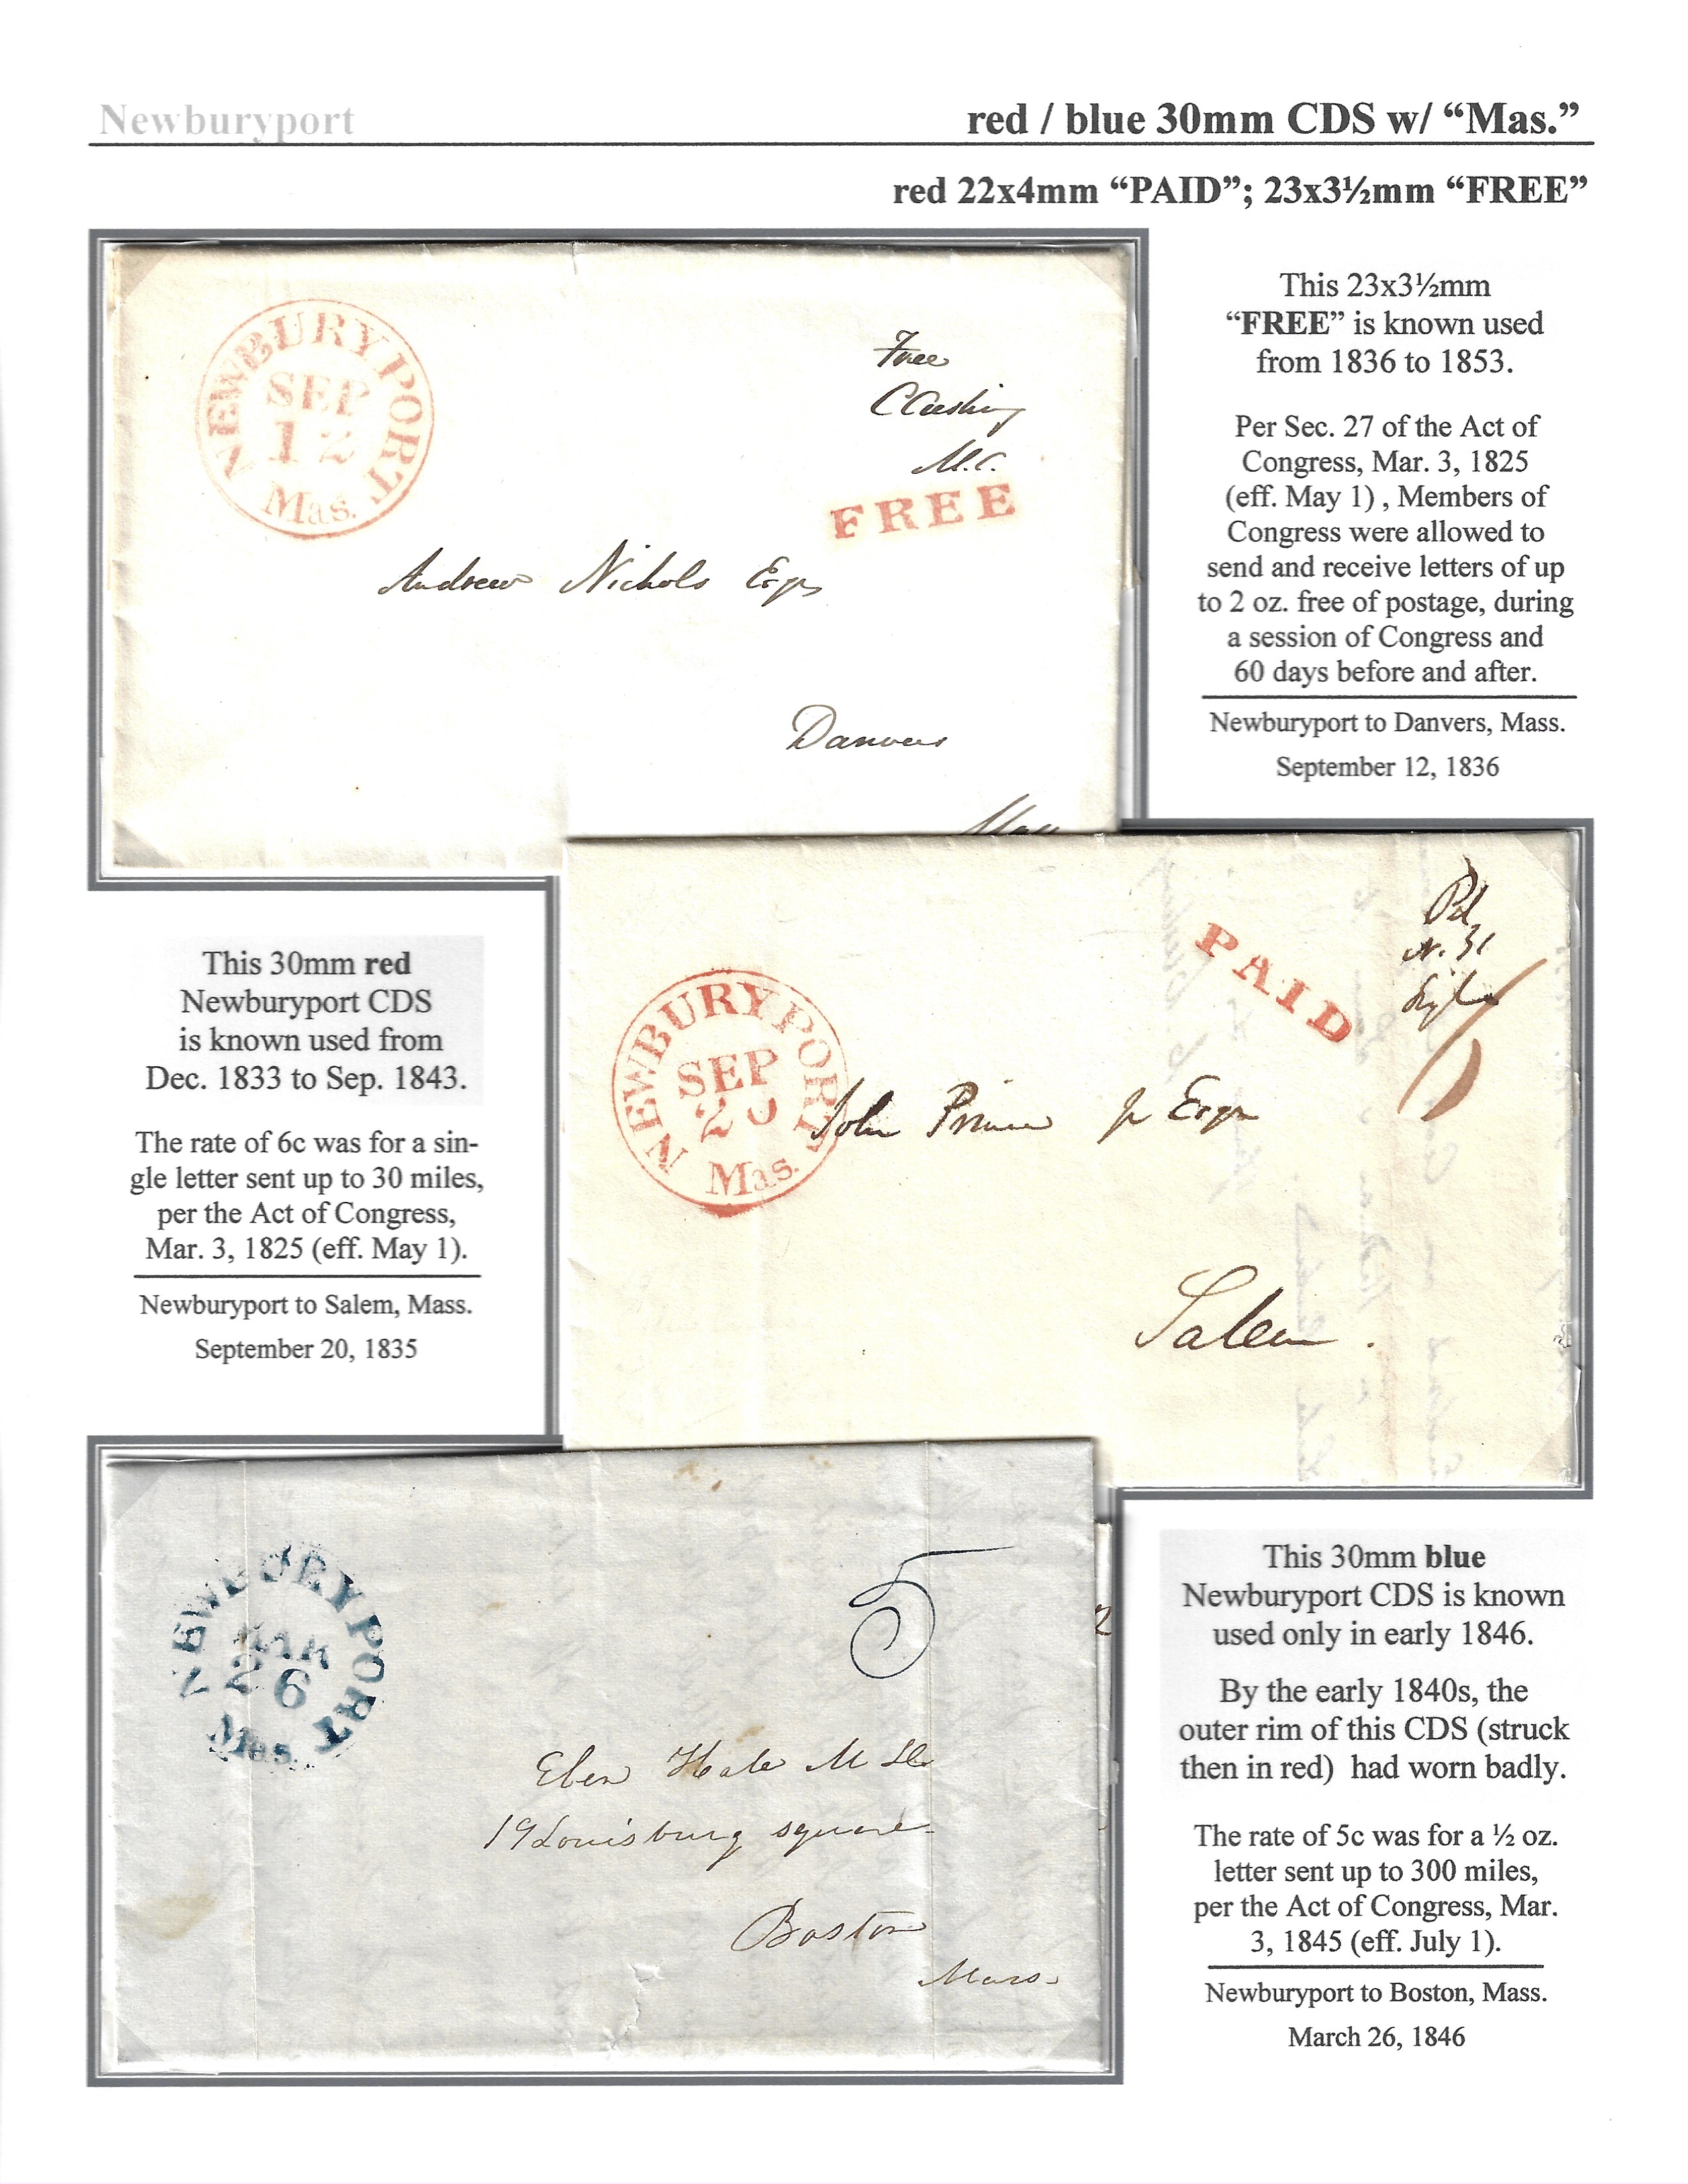 Newburyport
red / blue 30mm CDS w/ “Mas.”
red 22x4mm “PAID”; 23x3½mm “FREE”
NEWBURYPORT
SEP
12
Mas.
Free
CCushing
M.C.
FREE
Andrew Nichols Esqr
Danvers
Mass
This 23x3½mm
“FREE” is known used
from 1836 to 1853.
Per Sec. 27 of the Act of
Congress, Mar. 3, 1825
(eff. May 1) , Members of
Congress were allowed to
send and receive letters of up
to 2 oz. free of postage, during
a session of Congress and
60 days before and after.
Newburyport to Danvers, Mass.
September 12, 1836
This 30mm red
Newburyport CDS
is known used from
Dec. 1833 to Sep. 1843.
The rate of 6c was for a sin-
gle letter sent up to 30 miles,
per the Act of Congress,
Mar. 3, 1825 (eff. May 1).
Newburyport to Salem, Mass.
September 20, 1835
NEWBURYPORT
SEP
20
Mas.
PAID
Pd
John Prince Jr Esqr
Salem.
NEWBURYPORT
MAR
26
Mas.
5
Eben Hale M
19 Louisburg square
Boston
Mass.
This 30mm blue
Newburyport CDS is known
used only in early 1846.
By the early 1840s, the
outer rim of this CDS (struck
then in red) had worn badly.
The rate of 5c was for a ½ oz.
letter sent up to 300 miles,
per the Act of Congress, Mar.
3, 1845 (eff. July 1).
Newburyport to Boston, Mass.
March 26, 1846